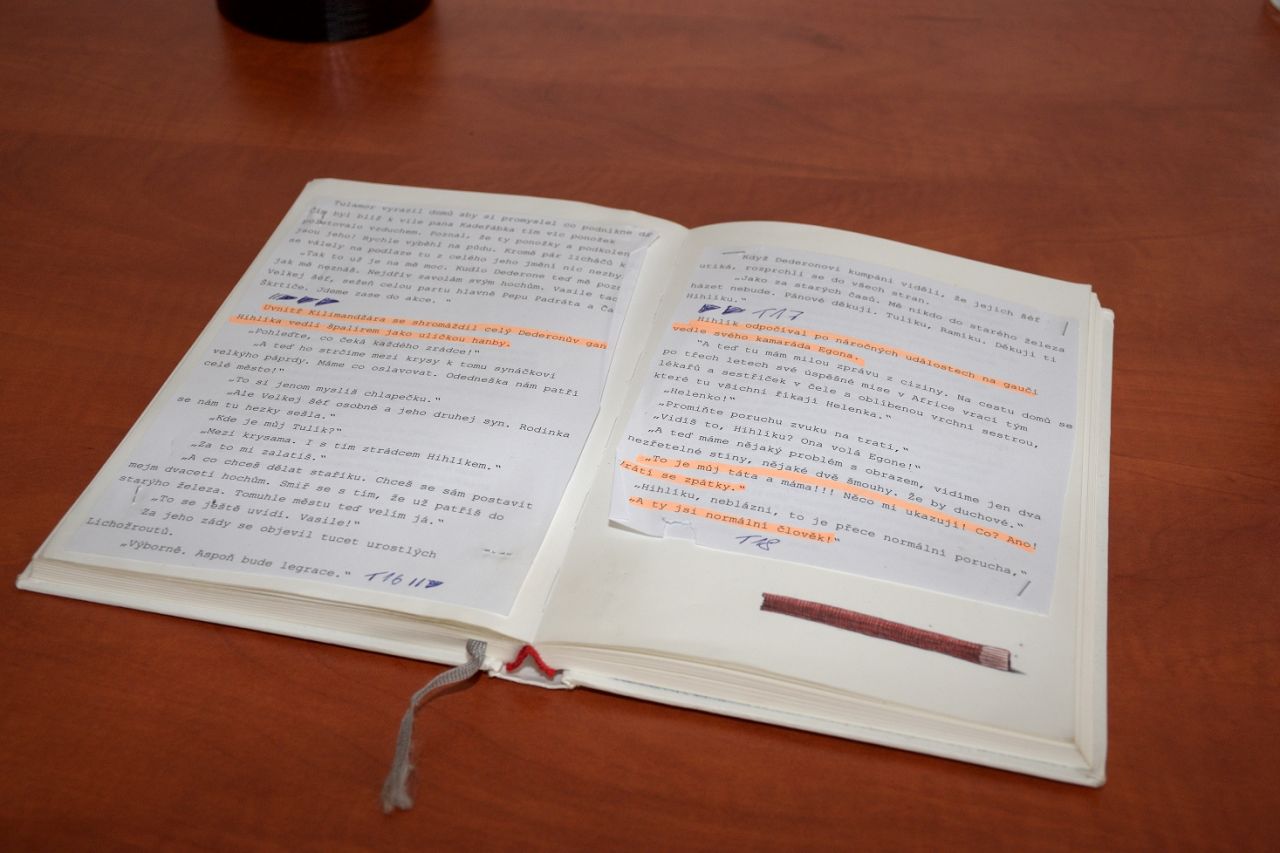 Tulamor vyrazil domů aby si promyslel co podnikne
Čím byl blíž k vile pana Kadeřábka tím víc ponožek
poletovalo vzduchem. Poznal, že ty ponožky a podkolen
jsou jeho! Rychle vyběhl na půdu. Kromě pár licháčů k
se válely na podlaze tu z celého jeho jmění nic nezby
„Tak to už je na mě moc. Kudlo Dederone teď mě pozn
jak mě neznáš. Nejdřív zavolám svým hochům. Vasile tad
Velkej Šéf, sežeň celou partu hlavně Pepu Padráta a Ča
Škrtiče. Jdeme zase do akce. "
Uvnitř Kilimandžára se shromáždil celý Dederonův gan
Hihlíka vedli špalírem jako uličkou hanby.
„Pohleďte, co čeká každého zrádce!"
„A teď ho strčíme mezi krysy k tomu synáčkovi
velkýho páprdy. Máme co oslavovat. Odedneška nám patří
celé město!"
„To si jenom myslíš chlapečku."
„Ale Velkej Šéf osobně a jeho druhej syn. Rodinka
se nám tu hezky sešla."
„Kde je můj Tulík?"
„Mezi krysama. I s tím ztrádcem Hihlíkem."
„Za to mi zalatíš."
„A co chceš dělat stařiku. Chceš se sám postavit
mejm dvaceti hochům. Smiř se s tím, že už patříš do
starýho železa. Tomuhle městu teď velím já."
„To se ještě uvidí. Vasile!"
Za jeho zády se objevil tucet urostlých
Lichožroutů.
„Výborně. Aspoň bude legrace." T16
Když Dederonovi kumpáni viděli, že jejich šéf
utíká, rozprchli se do všech stran.
„Jako za starých časů. Mě nikdo do starého železa
házet nebude. Pánové děkuji. Tulíku, Ramíku. Děkuji ti
Hihlíku."
T17
Hihlík odpočíval po náročných událostech na gauči
vedle svého kamaráda Egona.
"A teď tu mám milou zprávu z ciziny. Na cestu domů se
po třech letech své úspěšné mise v Africe vrací tým
lékařů a sestřiček v čele s oblíbenou vrchní sestrou,
které tu všichni říkají Helenka."
„Helenko!"
„Promiňte poruchu zvuku na trati,"
„Vidíš to, Hihlíku? Ona volá Egone!"
„A teď máme nějaký problém s obrazem, vidíme jen dva
nezřetelné stíny, nějaké dvě šmouhy. Že by duchové."
„To je můj táta a máma!!! Něco mi ukazují! Co? Ano!
Vrátí se zpátky."
„Hihlíku, neblázni, to je přece normální porucha,"
„A ty jsi normální člověk!"
T18